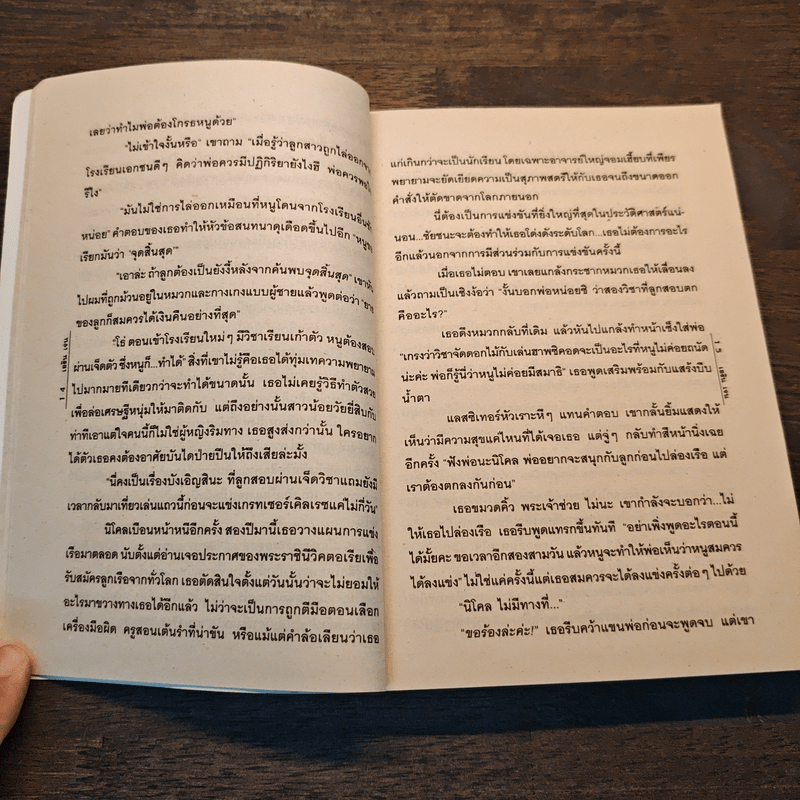 เลยว่าทำไมพ่อต้องโกรธหนูด้วย"
"ไม่เข้าใจงั้นหรือ" เขาถาม "เมื่อรู้ว่าลูกสาวถูกไล่ออกจาก
โรงเรียนเอกชนดีๆ คิดว่าพ่อควรมีปฏิกิริยายังไงฮึ พ่อควรพอใจ
รึไง"
"มันไม่ใช่การไล่ออกเหมือนที่หนูโดนจากโรงเรียนอื่นซัก
หน่อย" คำตอบของเธอทำให้หัวข้อสนทนาดุเดือดขึ้นไปอีก "หนูขอ
เรียกมันว่า 'จุดสิ้นสุด'"
"เอาล่ะ ถ้าลูกต้องเป็นยังงี้หลังจากค้นพบจุดสิ้นสุด" เขา
ไปผมที่ถูกม้วนอยู่ในหมวกและกางเกงแบบผู้ชายแล้วพูดต่อว่า
ของลูกก็สมควรได้เงินคืนอย่างที่สุด"
"โธ่ ตอนเข้าโรงเรียนใหม่ๆ มีวิชาเรียนเก้าตัว หนูต้องสอบ
ผ่านเจ็ดตัว ซึ่งหนูก็...ทำได้" สิ่งที่เขาไม่รู้คือเธอได้ทุ่มเทความพยายาม
ไปมากมายทีเดียวกว่าจะทำได้ขนาดนั้น เธอไม่เคยรู้วิธีทำตัวสวย
เพื่อล่อเศรษฐีหนุ่มให้มาติดกับ แต่ถึงอย่างนั้นสาวน้อยวัยยี่สิบกับ
ท่าทีเอาแต่ใจคนนี้ก็ไม่ใช่ผู้หญิงริมทาง เธอสูงส่งกว่านั้น ใครอยาก
ได้ตัวเธอคงต้องอาศัยบันไดป่ายปีนให้ถึงเสียล่ะมั้ง
"นี่คงเป็นเรื่องบังเอิญสินะ ที่ลูกสอบผ่านเจ็ดวิชาแถมยังมี
เวลากลับมาเที่ยวเล่นแถวนี้ก่อนจะแข่งเกรทเซอร์เคิลเรซแค่ไม่กี่วัน"
นิโคลเบือนหน้าหนีอีกครั้ง สองปีมานี้เธอวางแผนการแข่ง
เรือมาตลอด นับตั้งแต่อ่านเจอประกาศของพระราชินีวิคตอเรียเพื่อ
รับสมัครลูกเรือจากทั่วโลก เธอตัดสินใจตั้งแต่วันนั้นว่าจะไม่ยอมให้
อะไรมาขวางทางเธอได้อีกแล้ว ไม่ว่าจะเป็นการถูกตีมือตอนเลือก
เครื่องมือผิด ครูสอนเต้นรำที่น่าขัน หรือแม้แต่คำล้อเลียนว่าเธอ
14
แก่เกินกว่าจะเป็นนักเรียน โดยเฉพาะอาจารย์ใหญ่จอมเฮี้ยบที่เพียร
พยายามจะยัดเยียดความเป็นสุภาพสตรีให้กับเธอจนถึงขนาดออก
คำสั่งให้ตัดขาดจากโลกภายนอก
นี่ต้องเป็นการแข่งขันที่ยิ่งใหญ่ที่สุดในประวัติศาสตร์แน่-
นอน...ชัยชนะจะต้องทำให้เธอโด่งดังระดับโลก...เธอไม่ต้องการอะไร
อีกแล้วนอกจากการมีส่วนร่วมกับการแข่งขันครั้งนี้
เมื่อเธอไม่ตอบ เขาเลยแกล้งกระชากหมวกเธอให้เลื่อนลง
แล้วถามเป็นเชิงง้อว่า "งั้นบอกพ่อหน่อยซิ ว่าสองวิชาที่ลูกสอบตก
คืออะไร?"
เธอดึงหมวกกลับที่เดิม แล้วหันไปแกล้งทำหน้าเซ็งใส่พ่อ
"เกรงว่าวิชาจัดดอกไม้กับเล่นฮาพซิคอดจะเป็นอะไรที่หนูไม่ค่อยถนัด
น่ะค่ะ พ่อก็รู้นี่ว่าหนูไม่ค่อยมีสมาธิ" เธอพูดเสริมพร้อมกับแสร้งบีบ
น้ำตา
แลสซิเทอร์หัวเราะหึๆ แทนคำตอบ เขากลั้นยิ้มแสดงให้
เห็นว่ามีความสุขแค่ไหนที่ได้เจอเธอ แต่จู่ๆ กลับทำสีหน้านิ่งเฉย
อีกครั้ง "ฟังพ่อนะนิโคล พ่ออยากจะสนุกกับลูกก่อนไปล่องเรือ แต่
เราต้องตกลงกันก่อน"
เธอขมวดคิ้ว พระเจ้าช่วย ไม่นะ เขากำลังจะบอกว่า...ไม่
ให้เธอไปล่องเรือ เธอรีบพูดแทรกขึ้นทันที "อย่าเพิ่งพูดอะไรตอนนี้
ได้มั้ยคะ ขอเวลาอีกสองสามวัน แล้วหนูจะทำให้พ่อเห็นว่าหนูสมควร
ได้ลงแข่ง" ไม่ใช่แค่ครั้งนี้แต่เธอสมควรจะได้ลงแข่งครั้งต่อๆ ไปด้วย
"นิโคล ไม่มีทางที่..."
"ขอร้องล่ะค่ะ!" เธอรีบคว้าแขนพ่อก่อนจะพูดจบ แต่เขา
15